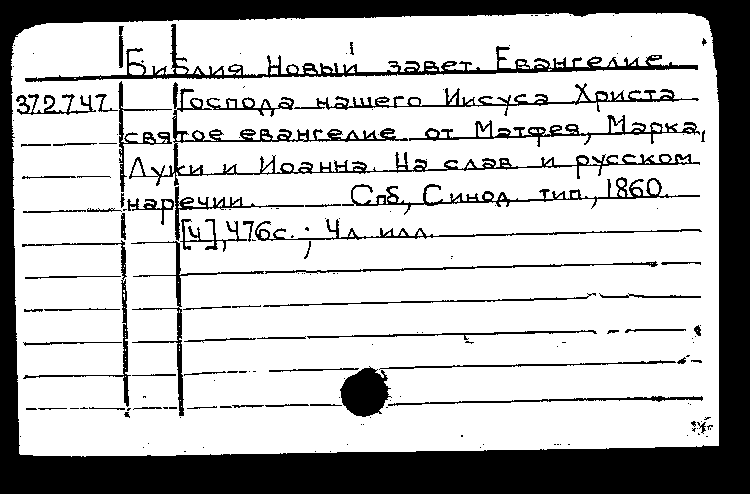 Библия Новый завет. Евангелие.
37.2.7.47. Господа нашего Иисуса Христа
святое евангелие от Матфея, Марка,
Луки и Иоанна. На слав. и русском
наречии. Спб., Синод. тип., 1860.
[4], 476с. ; 4 л. илл.